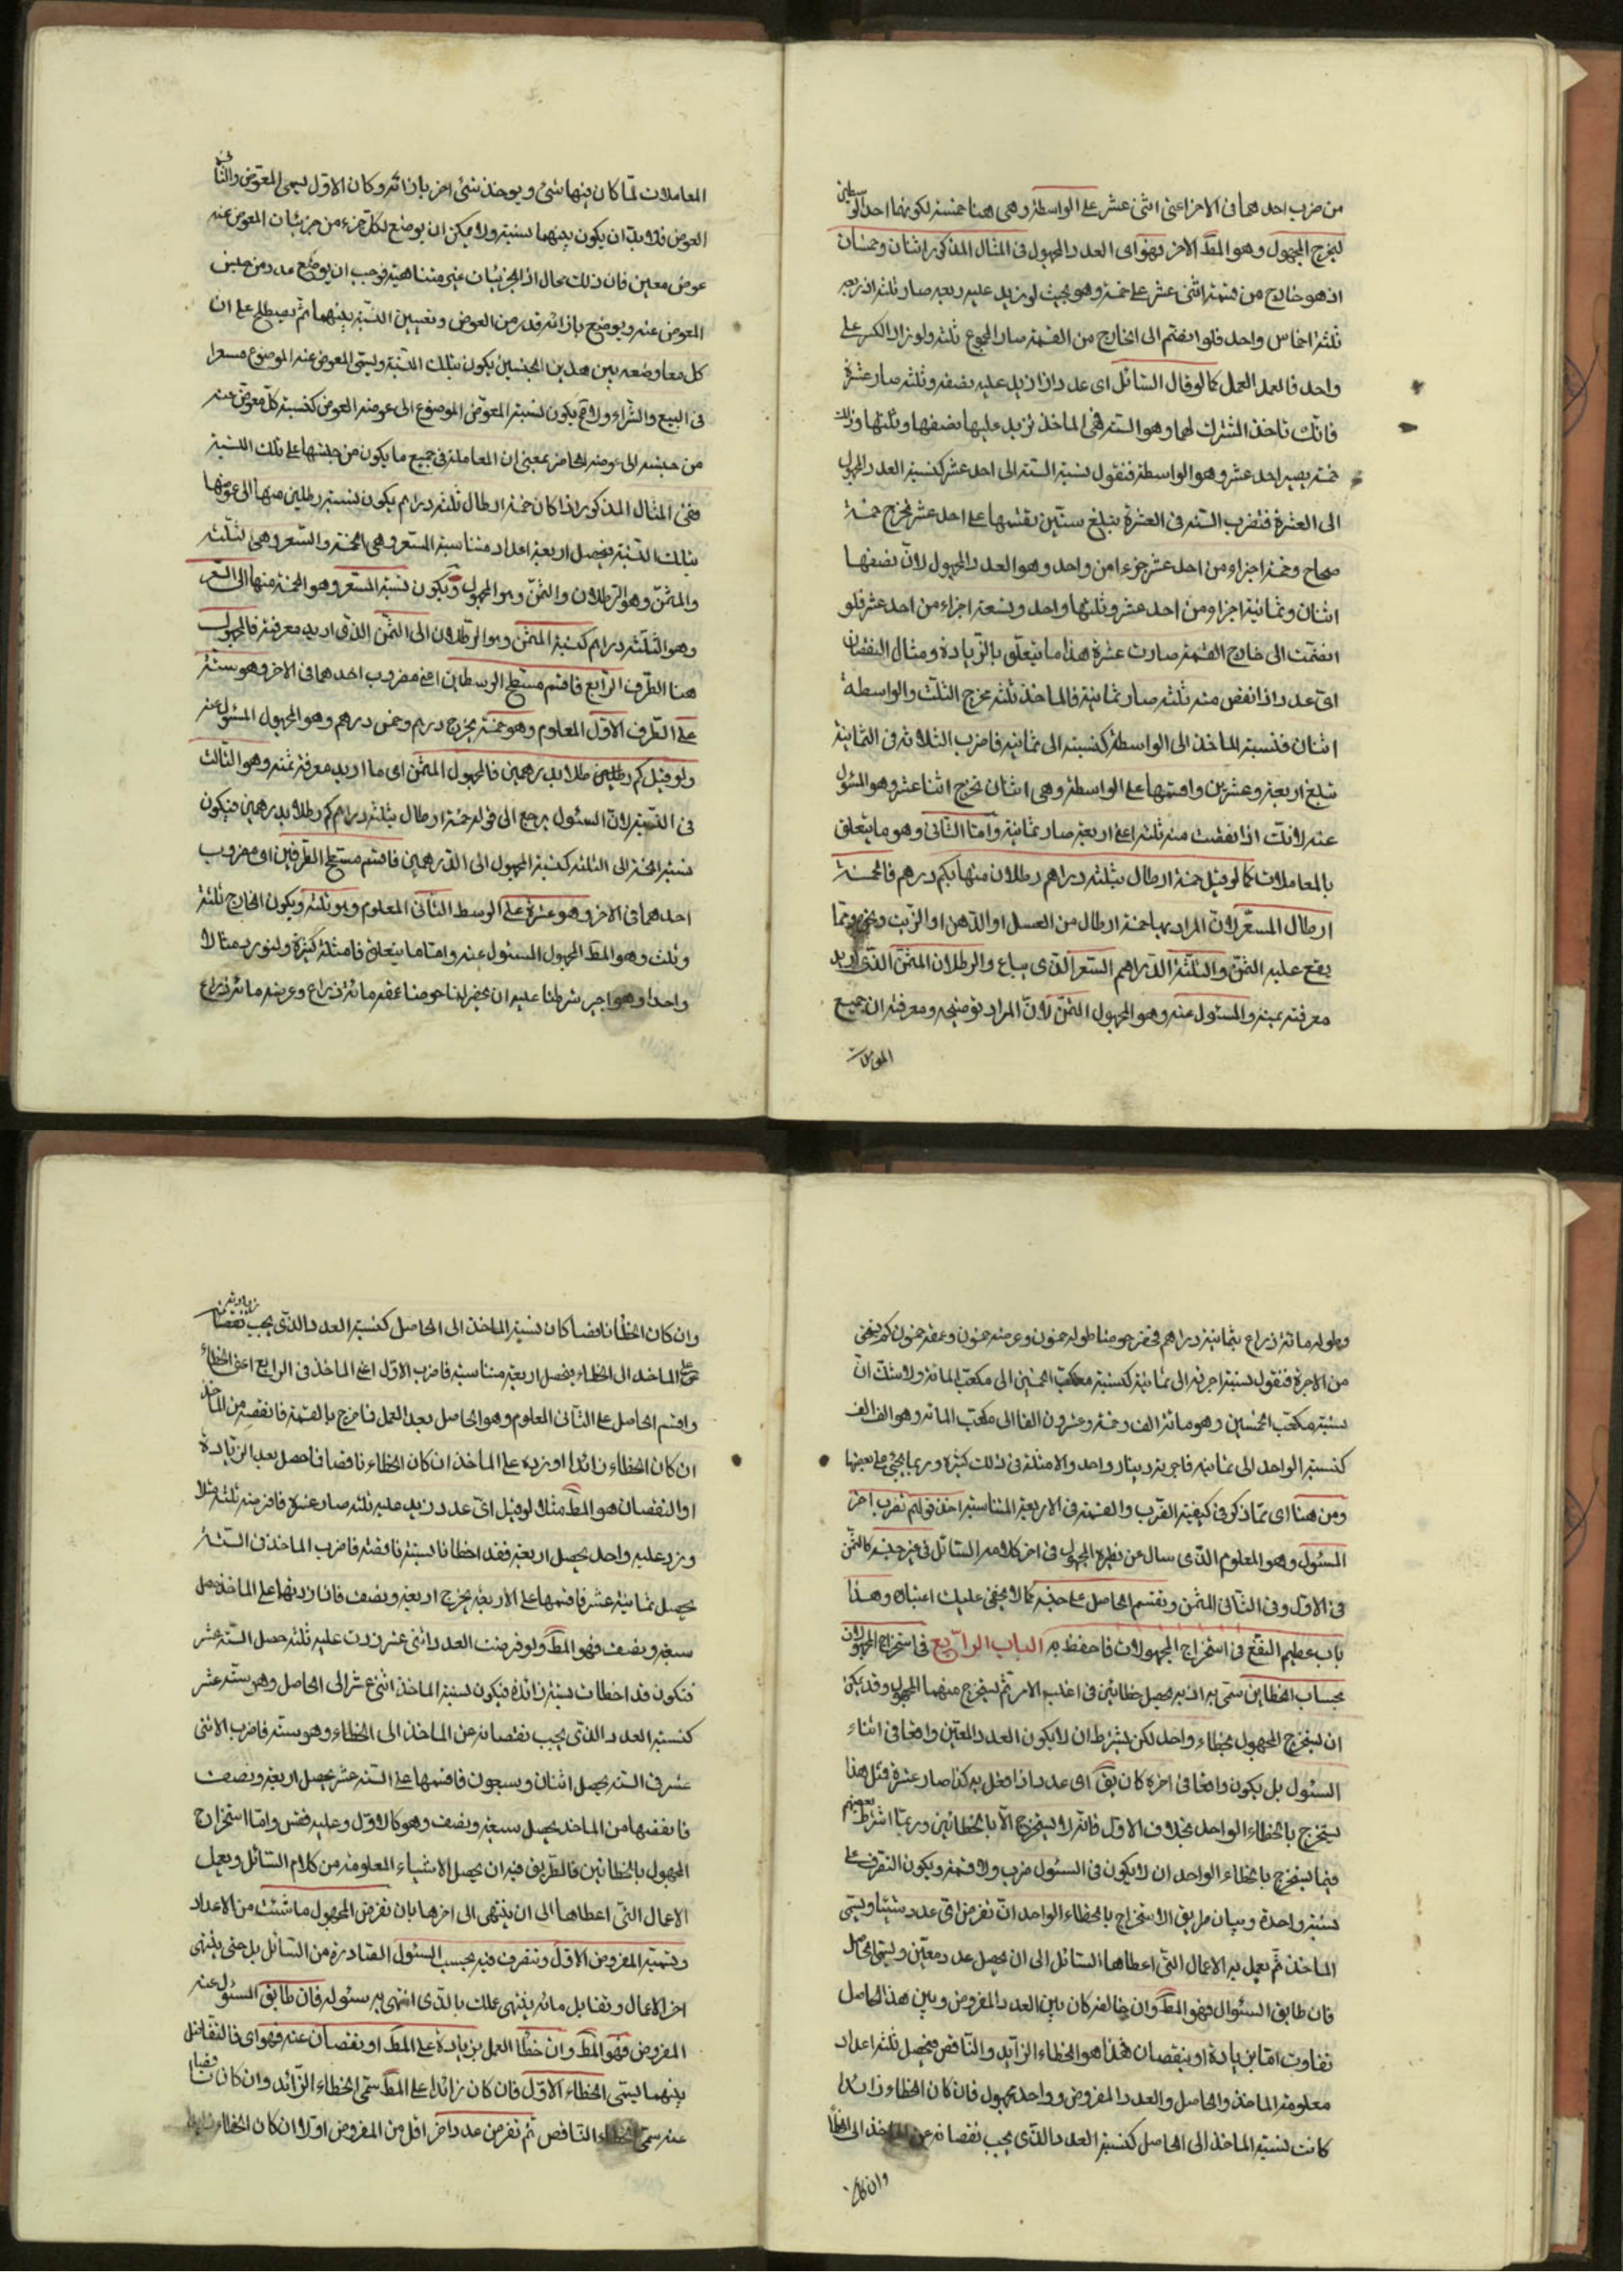 من ضرب احدهما فى الاخر اعنى اثنى عشر على الواسطة وهى هنا خمسة لكونهما احد الوسطين
ليخرج المجهول وهو المط الاخر فهو اى العدد المجهول فى المثال المذكور اثنان وخمسان
اذ هو خارج من قسمة اثنى عشر على خمسة وهو بحيث لو زيد عليه ربعه صار ثلثة اذ ربعه
ثلثة اخماس واحد فلو انضم الى الخارج من القسمة صار المجموع ثلثة ولو زاد الكسر على
واحد فالعمل العمل كما لو قال السائل اى عدد اذا زيد عليه نصفه وثلثه صار عشرة
فانك تاخذ المشترك لهما وهو الستة فهى الماخذ تزيد عليها نصفها وثلثها وذلك
خمسة يصير احد عشر وهو الواسطة فنقول نسبة الستة الى احد عشر كنسبة العدد المجهول
الى العشرة فنضرب الستة فى العشرة تبلغ ستين نقسمها على احد عشر يخرج خمسة
صحاح وخمسة اجزاء من احد عشر جزءا من واحد وهو العدد المجهول لان نصفها
اثنان وثمانية اجزاء من احد عشر وثلثها واحد وتسعة اجزاء من احد عشر فلو
انضمت الى خارج القسمة صارت عشرة هذا ما يتعلق بالزيادة ومثال النقصان
اى عدد اذا نقص منه ثلثه صار ثمانية فالماخذ ثلثة مخرج الثلث والواسطة
اثنان فنسبة الماخذ الى الواسطة كنسبته الى ثمانية فاضرب الثلاثة فى الثمانية
تبلغ اربعة وعشرين واقسمها على الواسطة وهى اثنان تخرج اثنا عشر وهو المسئول
عنه لانك اذا نقصت منه ثلثه اعنى اربعة صار ثمانية واما الثانى وهو ما يتعلق
بالمعاملات كما لو قيل خمسة ارطال بثلثة دراهم رطلان منها بكم درهم فالخمسة
ارطال المسعر لان المراد بها خمسة ارطال من العسل او الدهن او الزيت ونحوها مما
يقع عليه الثمن والثلثة الدراهم السعر الذى يباع والرطلان المثمن الذى اريد
معرفة ثمنه والمسئول عنه وهو المجهول الثمن لان المراد توضيحه ومعرفته ان جميع
المعاملات
المعاملات لما كان فيها شئ ويوخذ شئ اخر بازائه وكان الاول يسمى المعوض والثانى
العوض فلا بد ان يكون بينهما نسبة ولا يمكن ان يوضع لكل جزء من جزئيات المعوض عنه
عوض معين فان ذلك محال اذ الجزئيات غير متناهية فوجب ان يوضع عدد من جنس
المعوض عنه ويوضع بازائه قدر من العوض وتعيين النسبة بينهما ثم يصطلح على ان
كل معاوضة بين هذين الجنسين يكون بتلك النسبة ويسمى المعوض عنه الموضوع مسعرا
فى البيع والشراء يكون نسبة المعوض الموضوع الى عوضه العوض كنسبة كل معوض عنه
من جنسه الى عوضه الحاضر بمعنى ان المعاملة فى جميع ما يكون من جنسها على تلك النسبة
ففى المثال المذكور اذا كان خمسة ارطال ثلثة دراهم يكون نسبة رطلين منها الى عوضها
بتلك النسبة فيحصل اربعة اعداد متناسبة المسعر وهى الخمسة والسعر وهى ثلثة
والمثمن وهو الرطلان والثمن وهو المجهول ويكون نسبة المسعر وهو الخمسة منها الى السعر
وهو الثلثة دراهم كنسبة المثمن وهو الرطلان الى الثمن الذى اريد معرفته فالمجهول
هنا الطرف الرابع فاقسم مسطح الوسطين اعنى مضروب احدهما فى الاخر وهو ستة
على الطرف الاول المعلوم وهو خمسة يخرج درهم وخمس درهم وهو المجهول المسئول عنه
ولو قيل كم رطلا بدرهمين فالمجهول المثمن اى ما اريد معرفة ثمنه وهو الثالث
فى النسبة لان السئول يرجع الى قوله خمسة ارطال بثلثة دراهم كم رطلا بدرهمين فيكون
نسبة الخمسة الى الثلثة كنسبة المجهول الى الدرهمين فاقسم مسطح الطرفين اى مضروب
احدهما فى الاخر وهو عشرة على الوسط الثانى المعلوم وهو ثلثة ويكون الخارج ثلثة
وثلث وهو المط المجهول المسئول عنه واما ما يتعلق فامثلة كثيرة ولنورد مثالا
واحدا وهو اجير شرطنا عليه ان يحفر لنا حوضا عمقه مائة ذراع وعرضه مائة ذراع
وطوله مائة ذراع بثمانية دراهم فحفر حوضا طوله خمسون وعرضه خمسون وعمقه خمسون كم يستحق
من الاجرة فنقول نسبة اجرته الى ثمانية كنسبة مكعب الخمسين الى مكعب المائة ولا شك ان
نسبة مكعب الخمسين وهو مائة الف وخمسة وعشرون الفا الى مكعب المائة وهو الف الف
كنسبة الواحد الى ثمانية فاجرته دينار واحد والامثلة فى ذلك كثيرة وربما يجئ على بعضها
ومن هنا اى مما ذكر فى كيفية الضرب والقسمة فى الاربعة المتناسبة اخذ قولهم تضرب اخر
المسئول وهو المعلوم الذى سال عن نظيره المجهول فى اخر كلامه السائل فى غير جنسه كالثمن
فى الاول وفى الثانى المثمن ويقسم الحاصل على جنسه كما لا يخفى عليك اعتباره وهذا
باب عظيم النفع فى استخراج المجهولات فاحفظ به الباب الرابع فى استخراج المجهولات
بحساب الخطاين سمى به لانه يحصل خطائين فى اغلب الامر ثم يستخرج منهما المجهول وقد يمكن
ان يستخرج المجهول بخطاء واحد لكن بشرط ان لا يكون العدد المعين واقعا فى اثناء
السئول بل يكون واقعا فى اخره كان يق اى عدد اذا فعل به كذا صار عشرة فمثل هذا
يستخرج بالخطاء الواحد بخلاف الاول فانه لا يستخرج الا بالخطائين وربما اشترط بعضهم
فيما يستخرج بالخطاء الواحد ان لا يكون فى السئول ضرب ولا قسمة ويكون التصرف على
نسبة واحدة وبيان طريق الاستخراج بالخطاء الواحد ان تفرض اى عدد شئت ويسمى
الماخذ ثم يعمل به الاعمال التى اعطاها السائل الى ان يحصل عدد معين ويسمى الحاصل
فان طابق السئوال فهو المط وان خالفه كان بين العدد المفروض وبين هذا الحاصل
تفاوت اما بزيادة او بنقصان فهذا هو الخطاء الزايد والناقص فيحصل ثلثة اعداد
معلومة الماخذ والحاصل والعدد المفروض وواحد مجهول فان كان الخطاء زائدا
كانت نسبة الماخذ الى الحاصل كنسبة العدد الذى يجب نقصانه عن الماخذ الى الخطأ
وان كان
وان كان الخطأ ناقصا كان نسبة الماخذ الى الحاصل كنسبة العدد الذى يجب زيادته
على الماخذ الى الخطاء فيحصل اربعة متناسبة فاضرب الاول اعنى الماخذ فى الرابع اعنى الخطاء
واقسم الحاصل على الثانى المعلوم وهو الحاصل بعد العمل فما خرج بالقسمة فانقصه من الماخذ
ان كان الخطاء زائدا او زده على الماخذ ان كان الخطاء ناقصا فما حصل بعد الزيادة
او النقصان هو المط مثلا لو قيل اى عدد زيد عليه ثلثه صار عشرة فافرضه ثلثة مثلا
وزد عليه واحد يحصل اربعة فقد اخطأنا بستة ناقصة فاضرب الماخذ فى الستة
يحصل ثمانية عشر فاقسمها على الاربعة يخرج اربعة ونصف فاذا زدتها على الماخذ حصل
سبعة ونصف فهو المط ولو فرضت العدد اثنى عشر زدت عليه ثلثه حصل الستة عشر
فتكون قد اخطات بستة زائدة فيكون نسبة الماخذ اثنى عشر الى الحاصل وهو ستة عشر
كنسبة العدد الذى يجب نقصانه عن الماخذ الى الخطاء وهو ستة فاضرب الاثنى
عشر فى الستة يحصل اثنان وسبعون فاقسمها على الستة عشر يحصل اربعة ونصف
فانقصها من الماخذ يحصل سبعة ونصف وهو كالاول وعليه فقس واما استخراج
المجهول بالخطائين فالطريق فيه ان يحصل الاشياء المعلومة من كلام السائل ويعمل
الاعمال التى اعطاها الى ان ينتهى الى اخرها بان تفرض المجهول ما شئت من الاعداد
وتسميه المفروض الاول وتتصرف فيه بحسب السئول الصادرة من السائل بل حتى ينتهى
اخر الاعمال وتقابل ما ينتهى عملك بالذى انتهى به سئوله فان طابق السئول عنه
المفروض فهو المط وان خطأ العمل بزيادة على المط او نقصان عنه فهو اى فالتفاضل
بينهما يسمى الخطاء الاول فان كان زائدا على المط سمى الخطاء الزائد وان كان ناقصا
عنه سمى الخطاء الناقص ثم تفرض عدد اخر اقل من المفروض اولا ان كان الخطاء